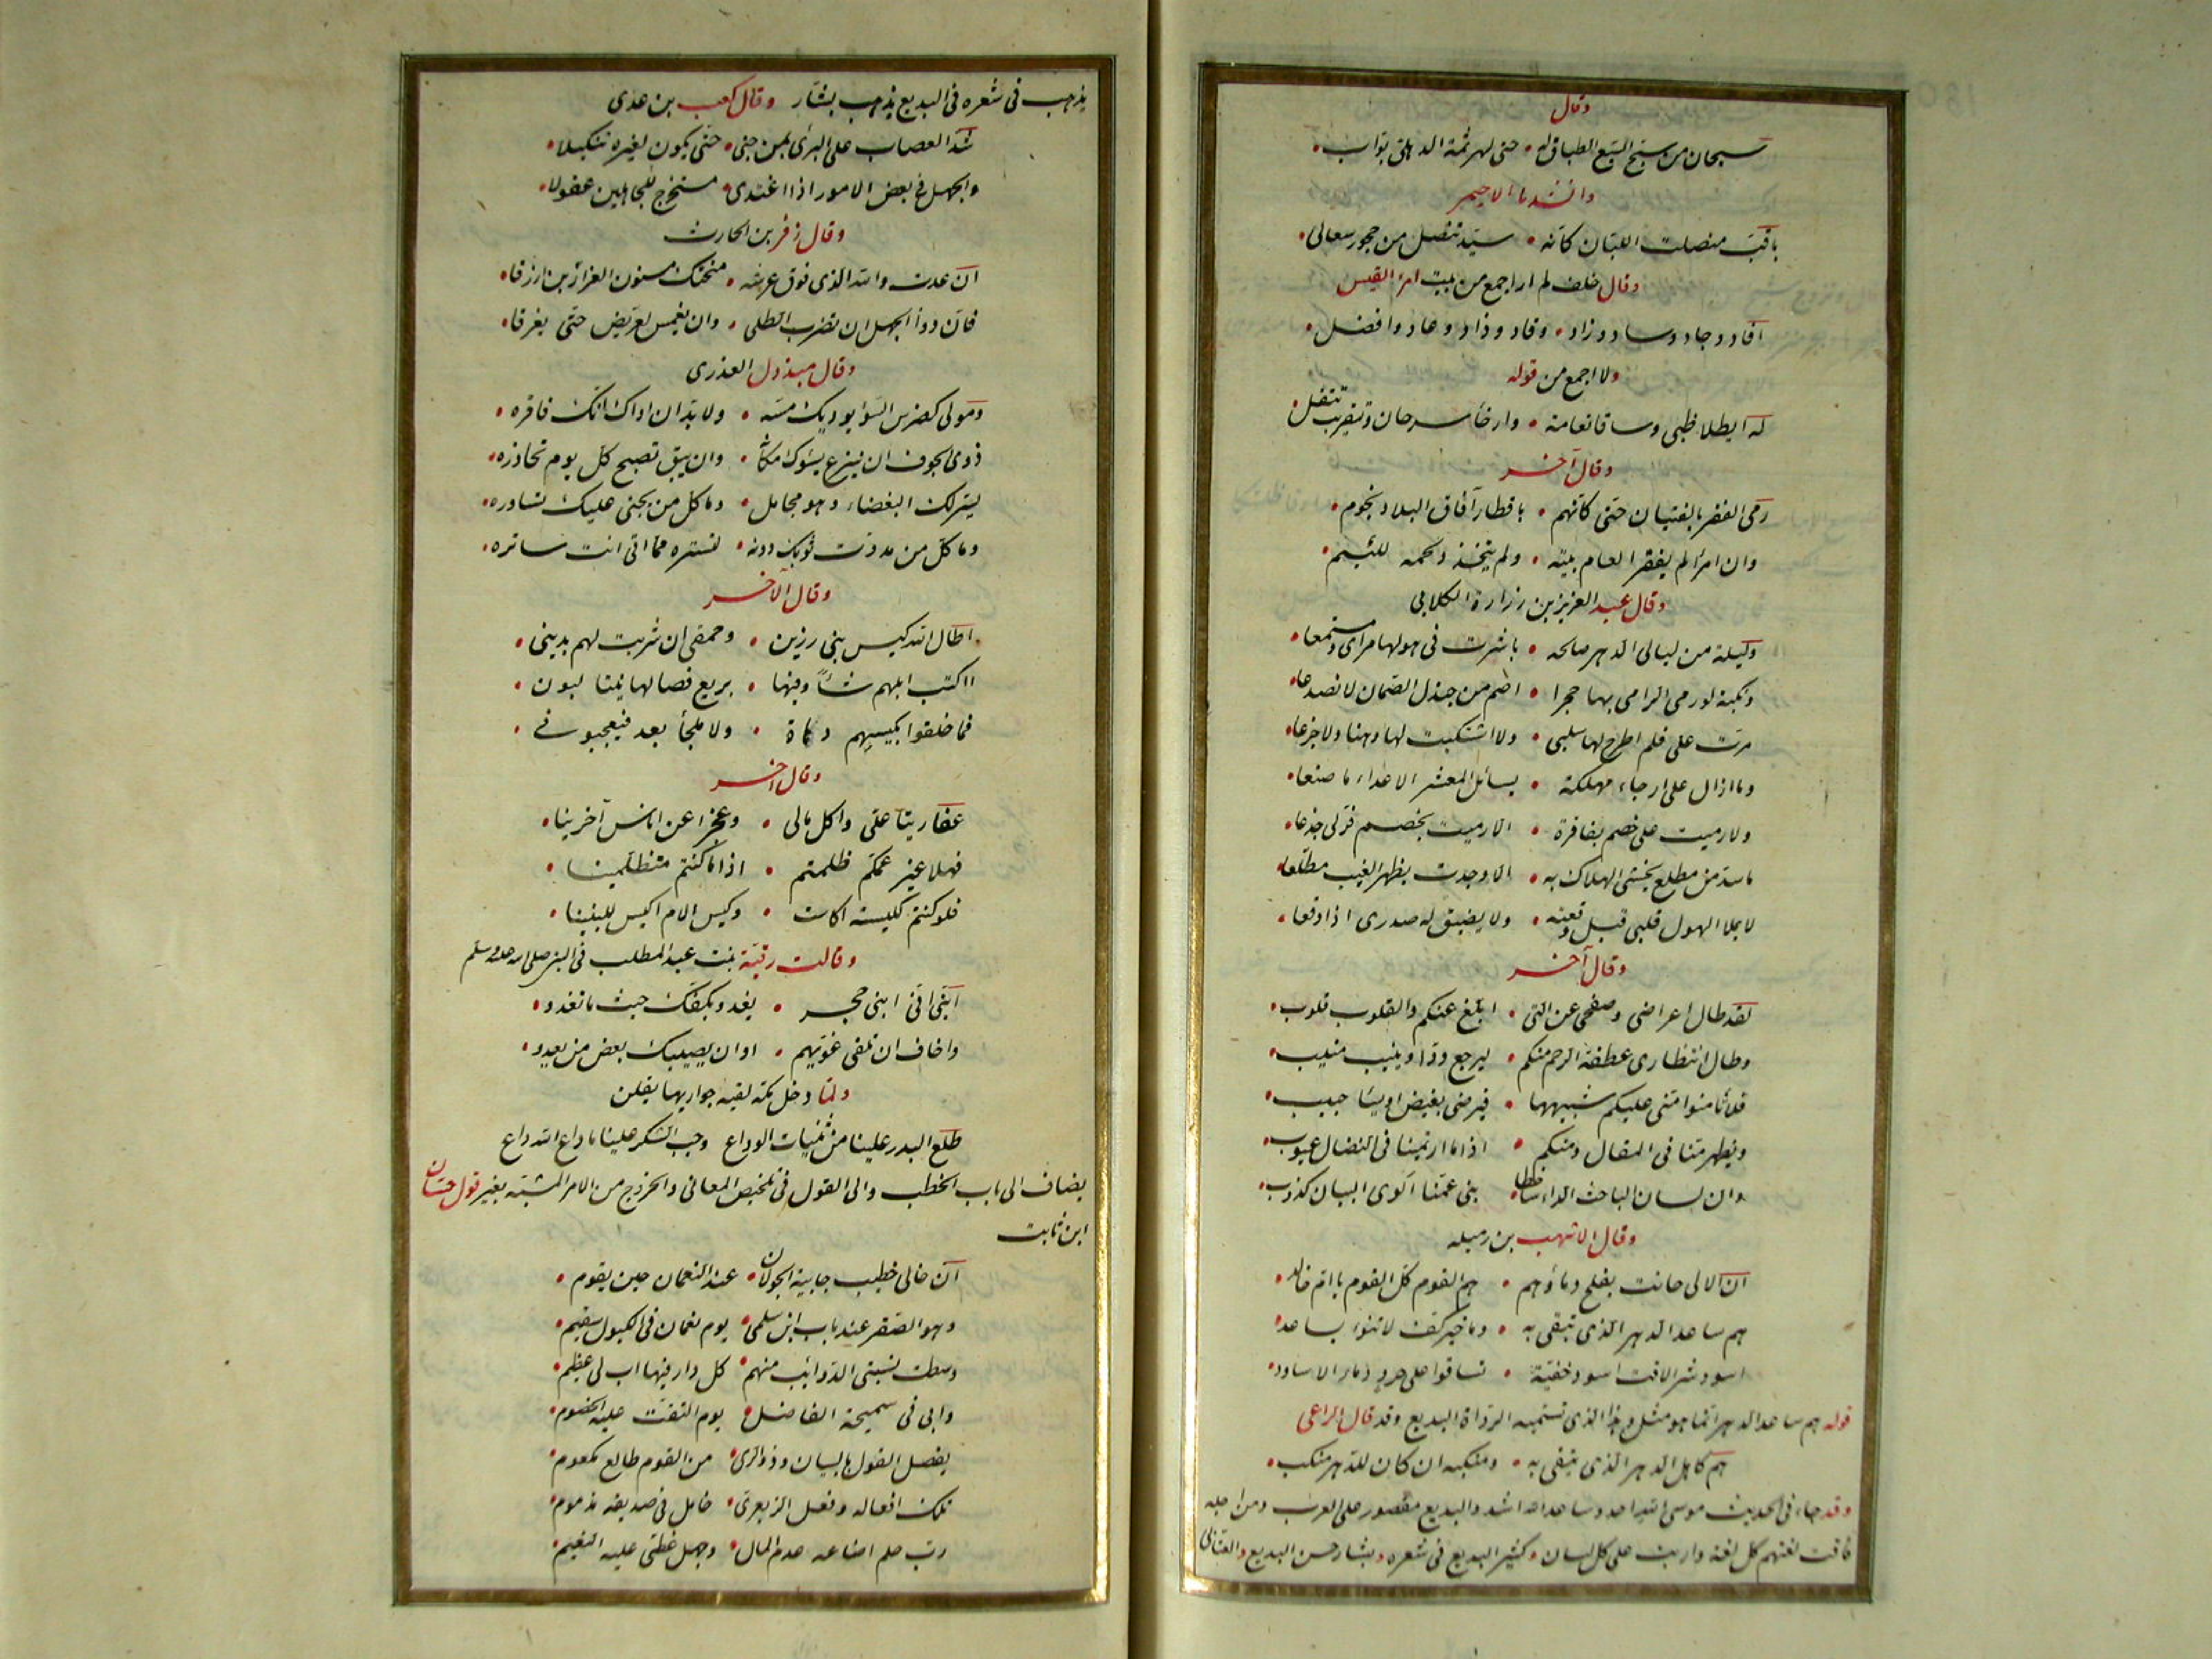 وقال
سبحان من سبح السبع الطباق له • حتى لهرثمة الذهلى بواب •
وانشدنا الاحيمر
باقب منصلت اللبان كانه • سيد تنصل من حجور سعالى •
وقال خلف لم ار اجمع من بيت امرئ القيس
افاد وجاد وساد وزاد • وقاد وذاد وعاد وافضل •
ولا اجمع من قوله
له ايطلا ظبى وساقا نعامة • وارخاء سرحان وتقريب تتفل •
وقال آخر
رمى الفقر بالفتيان حتى كانهم • باقطار آفاق البلاد نجوم •
وان امرأ لم يفقر العام بيته • ولم يتخذد لحمه للئيم •
وقال عبد العزيز بن زرارة الكلابى
وليلة من ليالى الدهر صالحه • باشرت فى هولها مرأى ومستمعا •
ونكبة لو رمى الرامى بها حجرا • اصم من جندل الصمان لانصدعا •
مرت على فلم اطرح لها سلبى • ولا اشتكيت لها وهنا ولا جزعا •
وما ازال على ارجاء مهلكة • يسائل المعشر الاعداء ما صنعا •
ولا رميت على خصم بفاقرة • الا رميت بخصم فر لى جذعا •
ما سد من مطلع يخشى الهلاك به • الا وجدت بظهر الغيب مطلعا •
لا يملا الهول قلبى قبل وقعته • ولا يضيق له صدرى اذا وقعا •
وقال آخر
لقد طال اعراضى وصفحى عن التى • ابلغ عنكم والقلوب قلوب •
وطال انتظارى عطفة الرحم منكم • ليرجع ود او ينيب منيب •
فلا تامنوا منى عليكم شبيهها • فيرضى بغيض او يساء حبيب •
ويظهر منا فى المقال ومنكم • اذا ما ارتمينا فى النضال عيوب •
وان لسان الباحث الداء ساخطا • بنى عمنا الوى البيان كذوب •
وقال الاشهب بن رميله
ان الالى حانت بفلج دماؤهم • هم القوم كل القوم يا ام خالد •
هم ساعد الدهر الذى يتقى به • وما خير كف لا تنوء بساعد •
اسود شرى لاقت اسود خفية • تساقوا على حرد دماء الاساود •
قوله هم ساعد الدهر انما هو مثل وهذا الذى تسميه الرواة البديع وقد قال الراعى
هم كاهل الدهر الذى يتقى به • ومنكبه ان كان للدهر منكب •
وقد جاء فى الحديث موسى الله احد وساعد الله اشد والبديع مقصور على العرب ومن اجله
فاقت لغتهم كل لغة واربت على كل لسان وكثير البديع فى شعره وبشار حسن البديع والعتابى
يذهب فى شعره فى البديع يذهب بشار وقال كعب بن عدى
شد العصاب على البرئ بمن جنى • حتى يكون لغيره تنكيلا •
والجهل فى بعض الامور اذا اغتدى • مستخرج للجاهلين عقولا •
وقال زفر بن الحارث
ان عدت والله الذى فوق عرشه • منحتك مسنون الغرارين ازرقا •
فان دواء الجهل ان تضرب الطلى • وان يغمس لعريض حتى يغرقا •
وقال مبذول العذرى
ومولى كضرس السوء يوذيك مسه • ولا بد ان اذاك انك فاقره •
ذوى الجوف ان ينزع يسوك مكانه • وان يبق تصبح كل يوم تحاذره •
يسر لك البغضاء وهو مجامل • وما كل من يجنى عليك تساوره •
وما كل من مددت ثوبك دونه • لتستره مما اتى انت ساتره •
وقال الآخر
اطال الله كيس بنى رزين • وحمقى ان شريت لهم بدينى •
ااكتب ابلهم شاء وفيها • بريع فصالها بنتا لبون •
فما خلقوا بكيسهم دهاة • ولا ملجأ بعد فيعجبونى •
وقال آخر
عفاريتا على واكل مالى • وعجزا عن اناس آخرينا •
فهلا غير عمكم ظلمتم • اذا ما كنتم متظلمينا •
فلو كنتم لكيسة اكاست • وكيس الام اكيس للبنينا •
وقالت رقية بنت عبد المطلب فى النبى صلى الله عليه وسلم
ابنى انى ابنى حجر • يغدو بكفك حيث ما تغدو •
واخاف ان تلقى غويهم • او ان يصيبك بعض من يعدو •
ولما دخل مكة لقيه جواريها يقلن
طلع البدر علينا من ثنيات الوداع وجب الشكر علينا ما داع الله داع
يضاف الى باب الخطب والى القول فى تلخيص المعانى والخروج من الامر المشتبه بغير قول حسان
ابن ثابت
ان خالى خطيب جابية الجولان • عند النعمان حين يقوم •
وهو الصقر عند باب ابن سلمى • يوم نعمان فى الكبول سقيم •
وسطت نسبتى الذوائب منهم • كل دار فيها اب لى عظيم •
وابى فى سميحة الفاصل • يوم التفت عليه الخصوم •
يفصل القول بالبيان وذو الرى • من القوم ظالع مكعوم •
تلك افعاله وفعل الزبعرى • خامل فى صديقه مذموم •
رب حلم اضاعه عدم المال • وجهل غطى عليه النعيم •